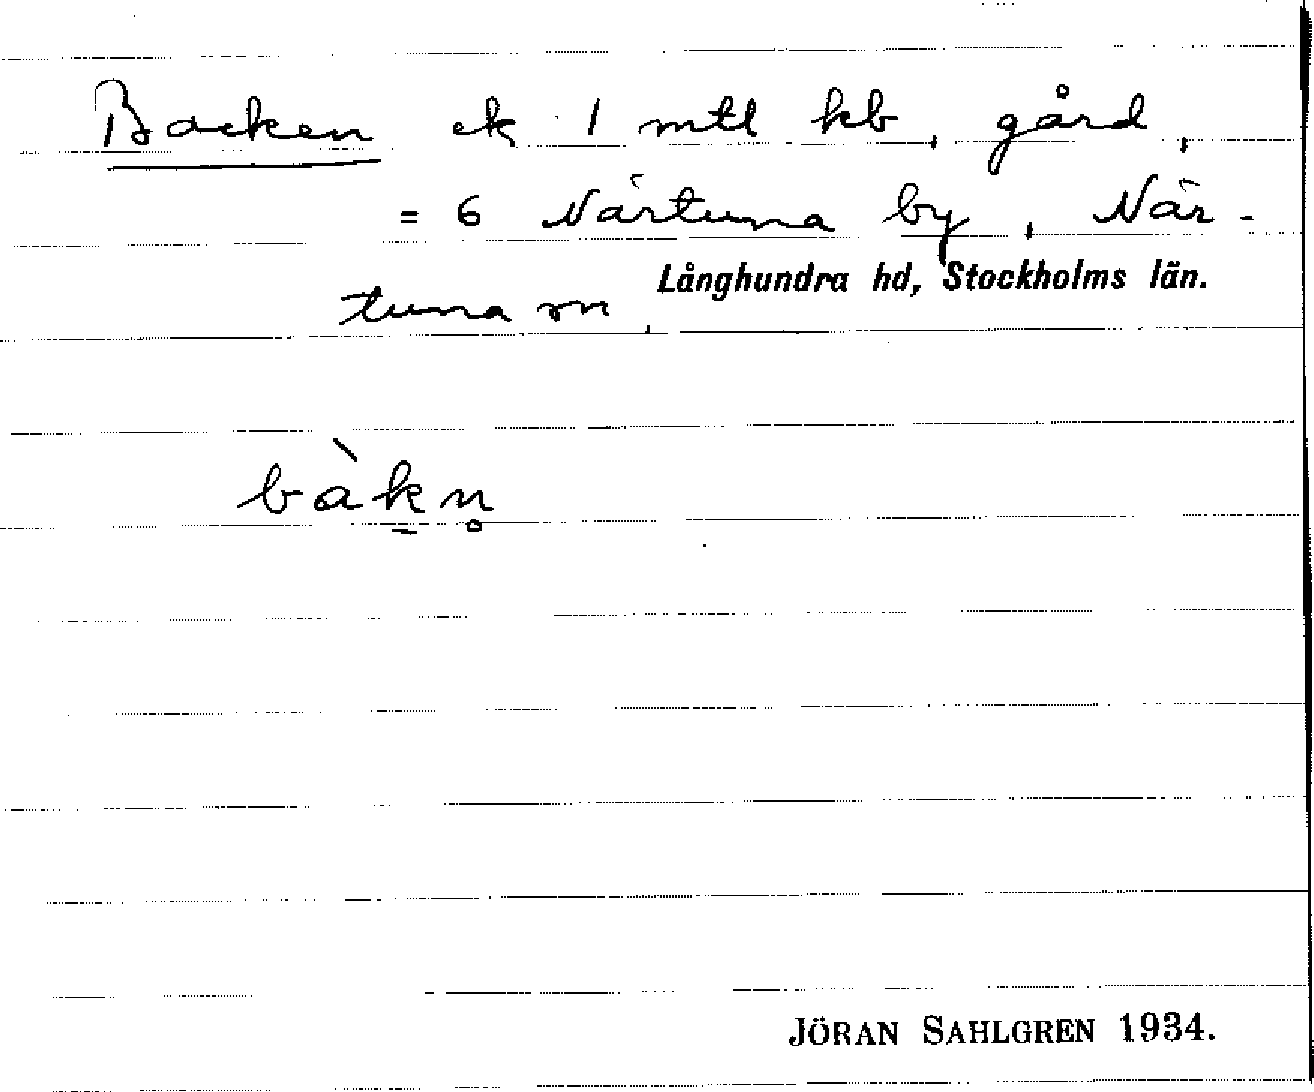 Backen ek 1 mtl kb, gård,
= 6 Närtuna by, När-
tuna sn, Långhundra hd, Stockholms län.
bàk̠n̥
JÖRAN SAHLGREN 1934.